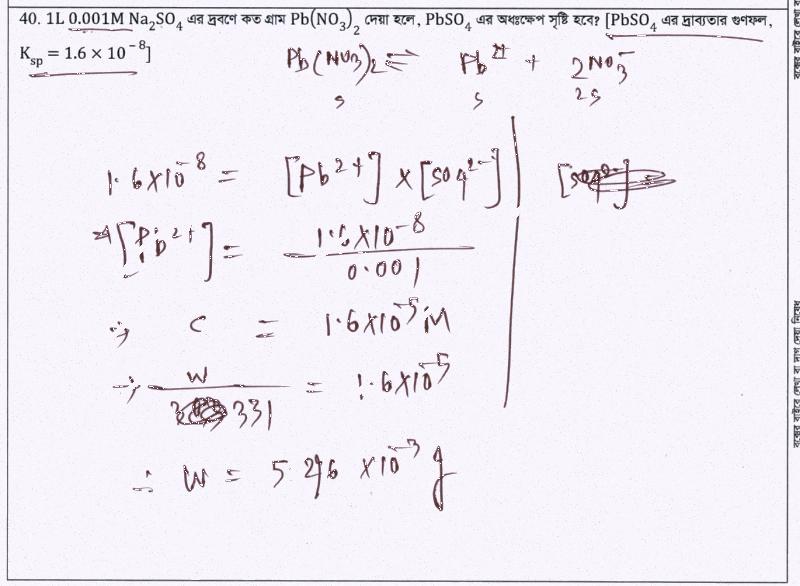 40. 1L 0.001M Na₂SO₄ এর দ্রবণে কত গ্রাম Pb(NO₃)₂ দেয়া হলে, PbSO₄ এর অধঃক্ষেপ সৃষ্টি হবে? [PbSO₄ এর দ্রাব্যতার গুণফল,
K_sp = 1.6 × 10⁻⁸]
Pb(NO₃)₂ ⇌ Pb²⁺ + 2NO₃⁻
s s 2s
1.6×10⁻⁸ = [Pb²⁺] × [SO₄²⁻]
⇒ [Pb²⁺] = 1.6×10⁻⁸ / 0.001
∴ C = 1.6×10⁻⁵ M
∴ W / 331 = 1.6×10⁻⁵
∴ W = 5.296 ×10⁻³ g